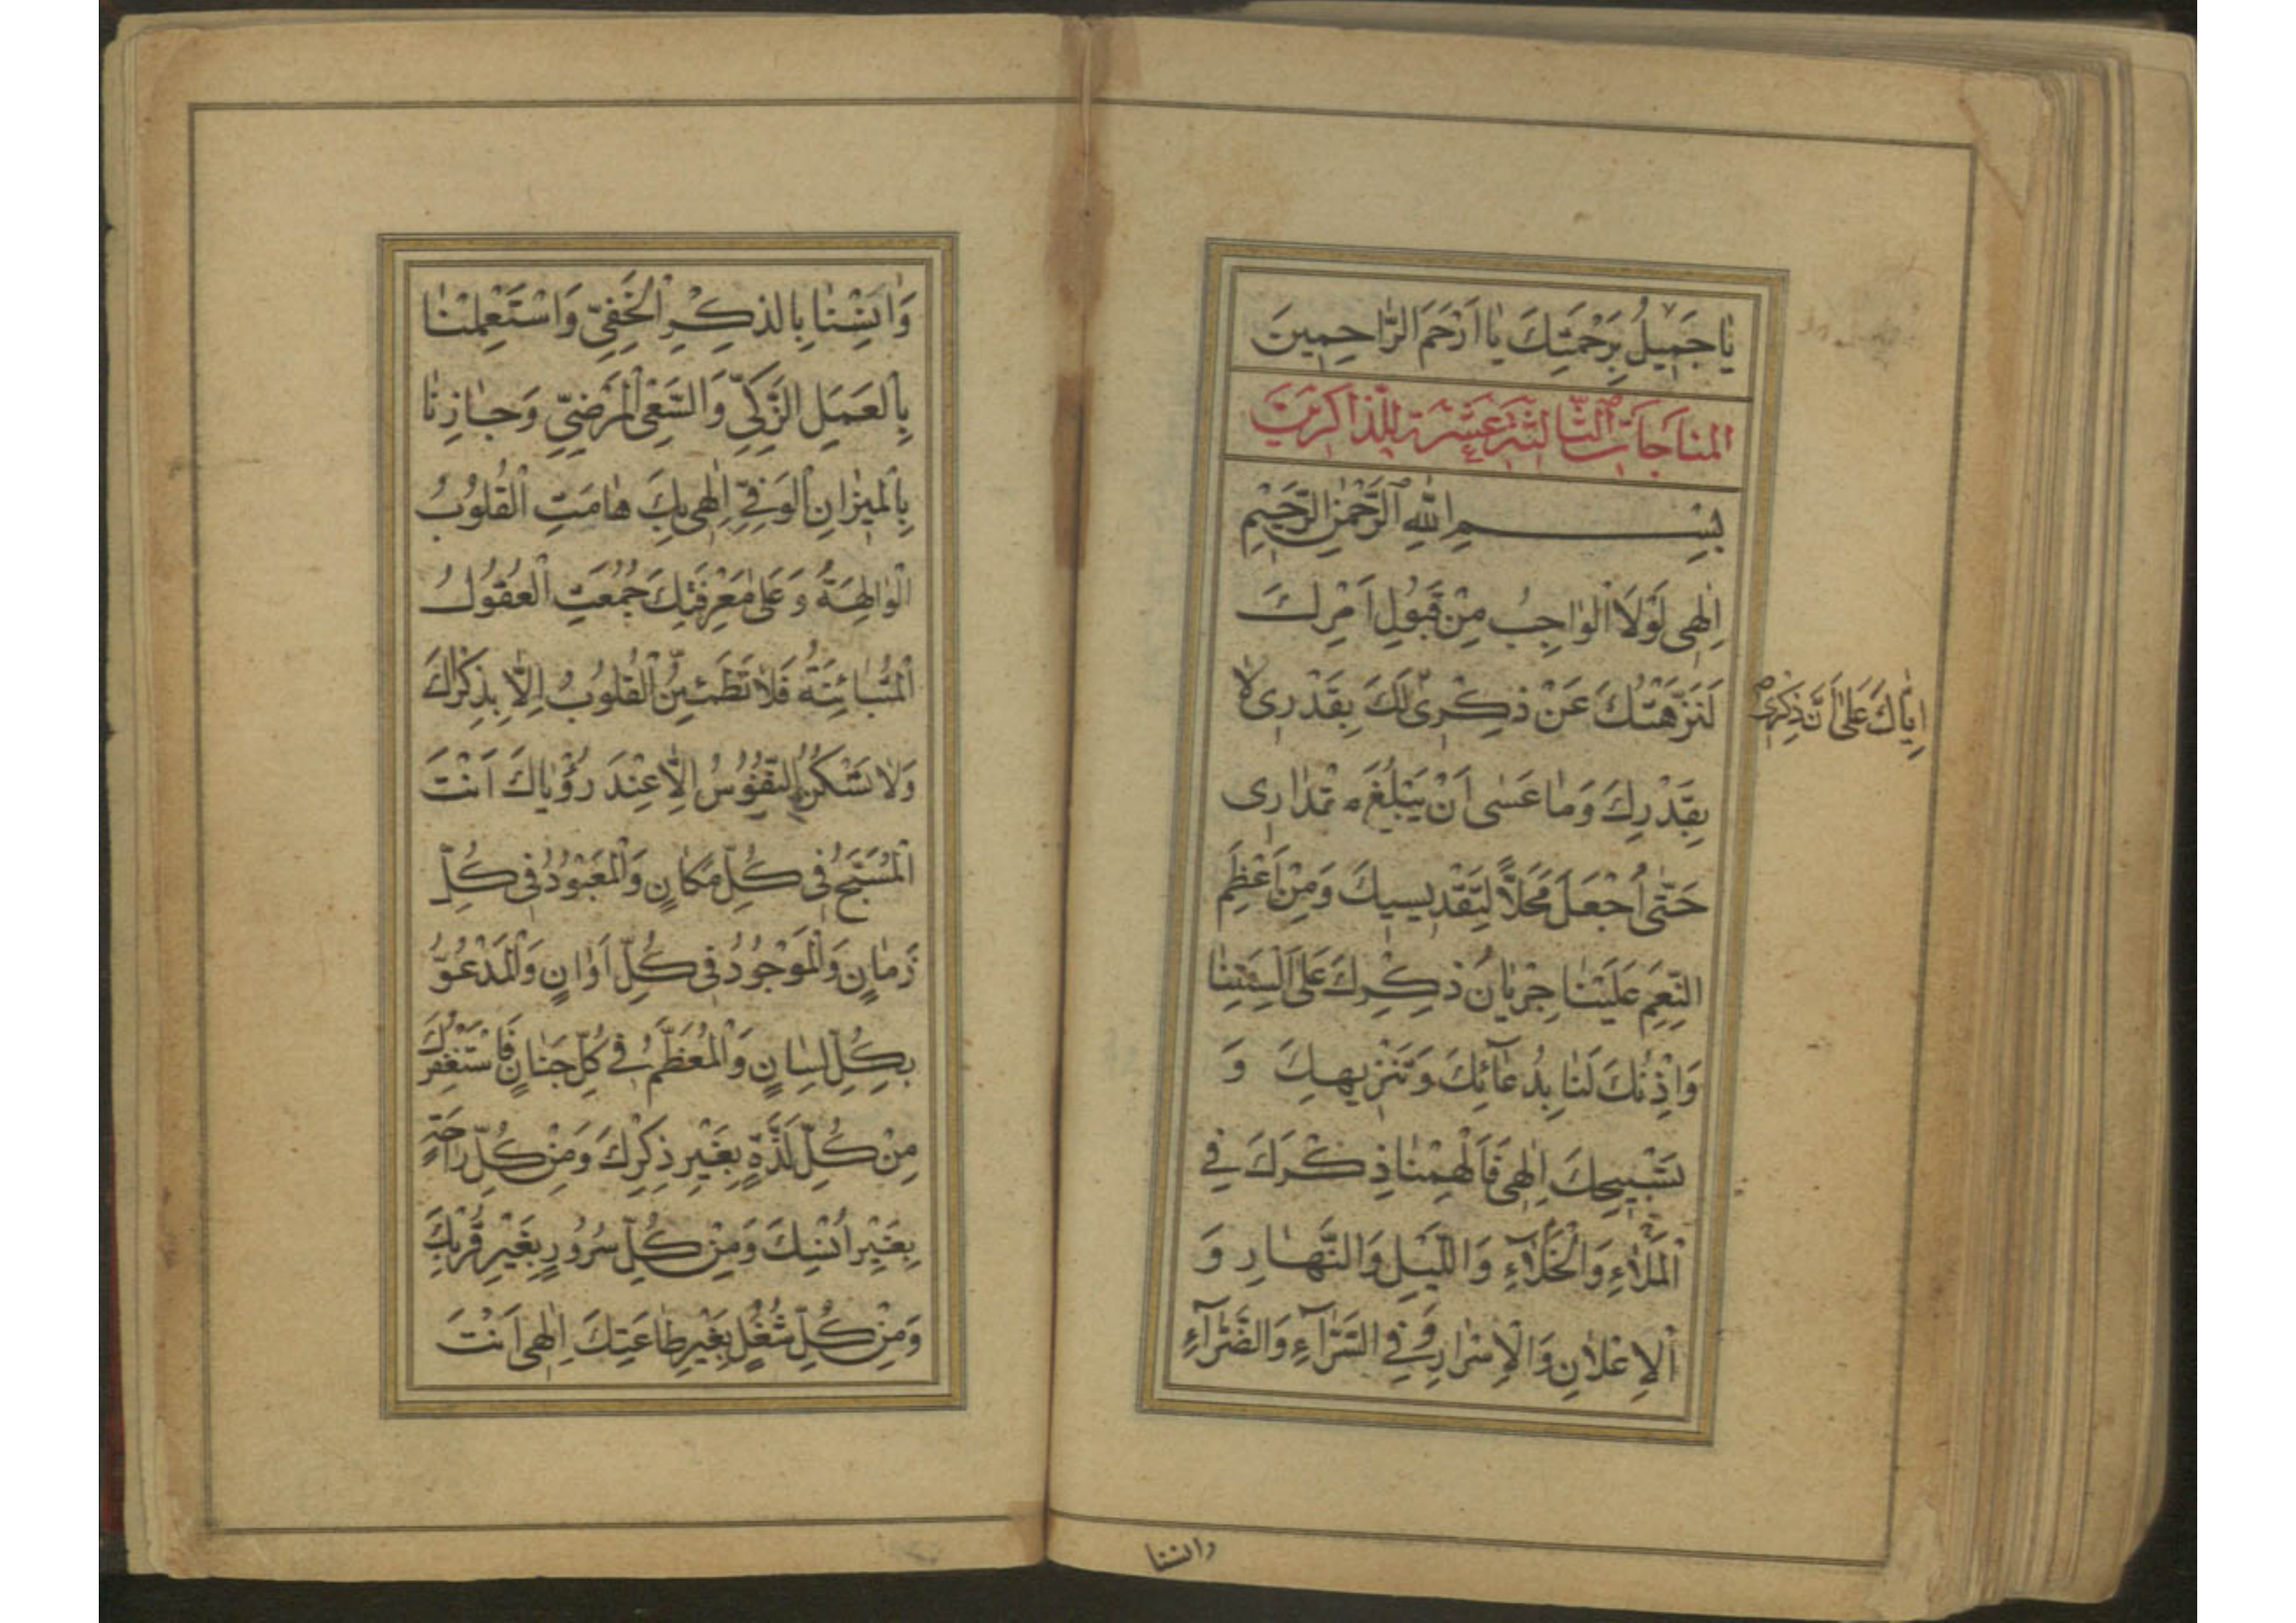 يٰا جَمِيلُ بِرَحْمَتِكَ يٰا اَرْحَمَ الرّٰاحِمِينَ
المناجات الثالثة عشرة للذاكرين
بِسْمِ اللّٰهِ الرَّحْمٰنِ الرَّحِيْمِ
اِلٰهِى لَوْلَا الْوٰاجِبُ مِنْ قَبُولِ اَمْرِكَ
لَنَزَّهْتُكَ عَنْ ذِكْرِى لَكَ بِقَدْرِى لٰا
اِيّٰاكَ عَلىٰ اَنَّ ذِكْرِى
بِقَدْرِكَ وَمٰا عَسٰى اَنْ يَبْلُغَ مِقْدٰارِى
حَتّٰى اُجْعَلَ مَحَلاًّ لِتَقْدِيسِكَ وَمِنْ اَعْظَمِ
النِّعَمِ عَلَيْنٰا جِرْيٰانُ ذِكْرِكَ عَلىٰ اَلْسِنَتِنٰا
وَاِذْنُكَ لَنٰا بِدُعٰآئِكَ وَتَنْزِيهِكَ وَ
تَسْبِيحِكَ اِلٰهِى فَاَلْهِمْنٰا ذِكْرَكَ فِى
الْمَلَاءِ وَالْخَلَآءِ وَاللَّيْلِ وَالنَّهٰارِ وَ
الْاِعْلٰانِ وَالْاِسْرٰارِ وَفِى السَّرّٰآءِ وَالضَّرّٰآءِ
وانسنا
وَاٰنِسْنٰا بِالذِكْرِ الْخَفِىِّ وَاسْتَعْمِلْنٰا
بِالْعَمَلِ الزَّكِىِّ وَالسَّعْىِ الْمَرْضِىِّ وَجٰازِنٰا
بِالْمِيزٰانِ الْوَفِىِّ اِلٰهِى بِكَ هٰامَتِ الْقُلُوبُ
الْوٰالِهَةُ وَعَلىٰ مَعْرِفَتِكَ جُمِعَتِ الْعُقُولُ
الْمُتَبٰائِنَةُ فَلٰا تَطْمَئِنُّ الْقُلُوبُ اِلّٰا بِذِكْرِكَ
وَلٰا تَسْكُنُ النُّفُوسُ اِلّٰا عِنْدَ رُؤْيٰاكَ اَنْتَ
الْمُسَبَّحُ فِى كُلِّ مَكٰانٍ وَالْمَعْبُودُ فِى كُلِّ
زَمٰانٍ وَالْمَوْجُودُ فِى كُلِّ اَوٰانٍ وَالْمَدْعُوُّ
بِكُلِّ لِسٰانٍ وَالْمُعَظَّمُ فِى كُلِّ جَنٰانٍ فَاَسْتَغْفِرُكَ
مِنْ كُلِّ لَذَّةٍ بِغَيْرِ ذِكْرِكَ وَمِنْ كُلِّ رٰاحَةٍ
بِغَيْرِ اُنْسِكَ وَمِنْ كُلِّ سُرُورٍ بِغَيْرِ قُرْبِكَ
وَمِنْ كُلِّ شُغْلٍ بِغَيْرِ طٰاعَتِكَ اِلٰهِى اَنْتَ